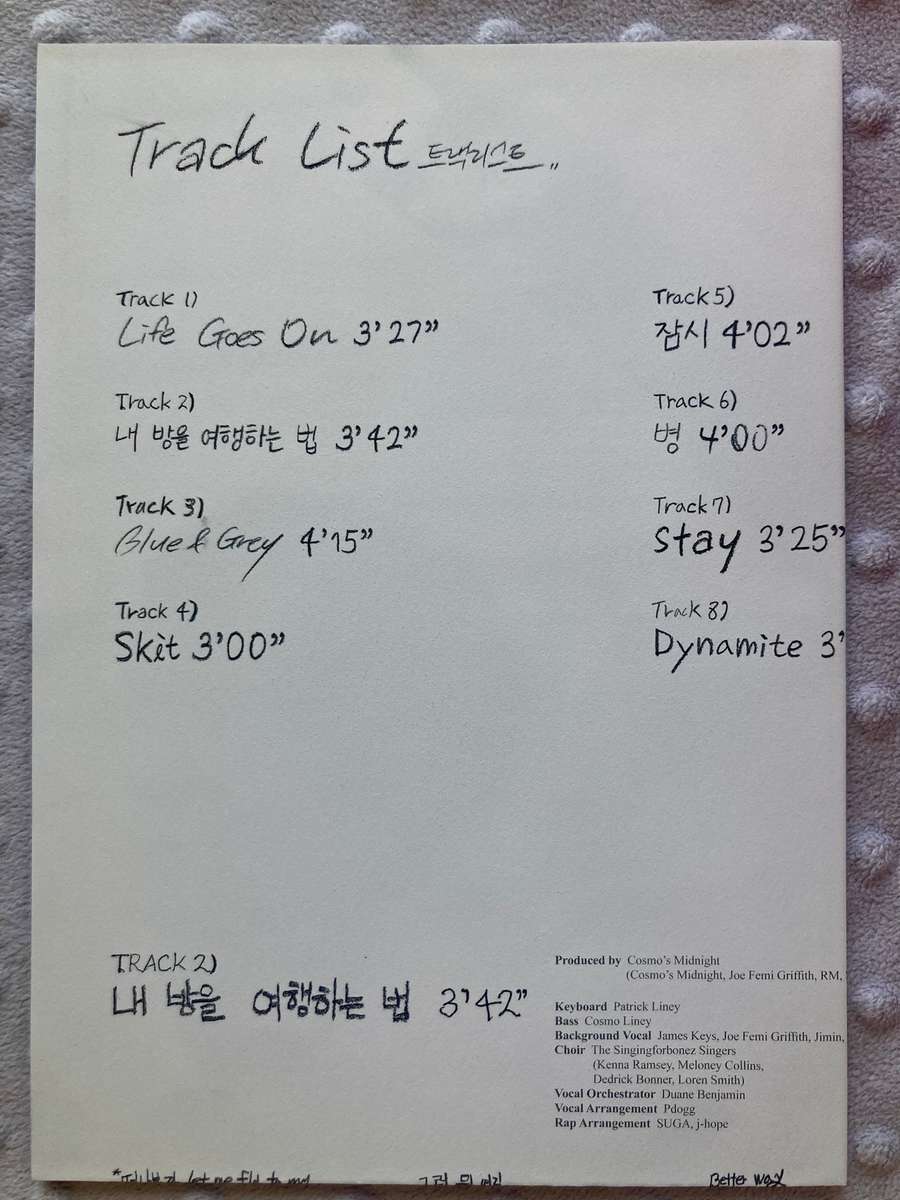 Track List 트랙리스트 "
Track 1)
Life Goes On 3'27"
Track 2)
내 방을 여행하는 법 3'42"
Track 3)
Blue & Grey 4'15"
Track 4)
Skit 3'00"
Track 5)
잠시 4'02"
Track 6)
병 4'00"
Track 7)
Stay 3'25"
Track 8)
Dynamite 3'
TRACK 2)
내 방을 여행하는 법 3'42"
Produced by Cosmo's Midnight
(Cosmo's Midnight, Joe Femi Griffith, RM,
Keyboard Patrick Liney
Bass Cosmo Liney
Background Vocal James Keys, Joe Femi Griffith, Jimin,
Choir The Singingforbonez Singers
(Kenna Ramsey, Meloney Collins,
Dedrick Bonner, Loren Smith)
Vocal Orchestrator Duane Benjamin
Vocal Arrangement Pdogg
Rap Arrangement SUGA, j-hope
let me fly to my
Better way